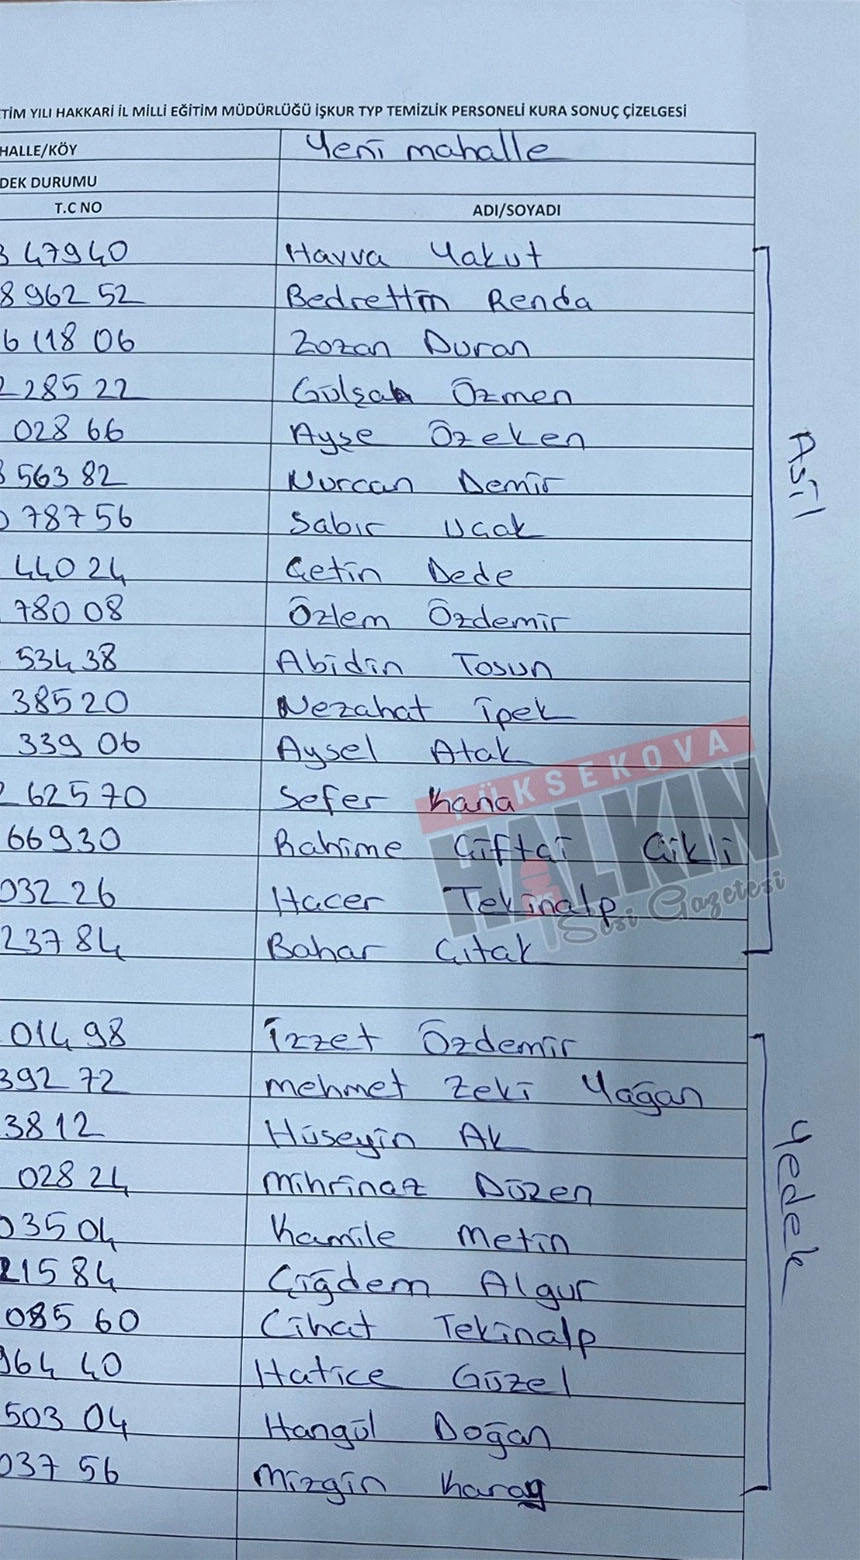 TİM YILI HAKKARİ İL MİLLİ EĞİTİM MÜDÜRLÜĞÜ İŞKUR TYP TEMİZLİK PERSONELİ KURA SONUÇ ÇİZELGESİ
HALLE/KÖY Yeni mahalle
DEK DURUMU
T.C NO ADI/SOYADI
3 47940 Havva Yakut
8 962 52 Bedrettin Renda
6 118 06 Zozan Duran
2 285 22 Gülşah Özmen
028 66 Ayşe Özeken
563 82 Nurcan Demir
787 56 Sabır Uçak
440 24 Çetin Dede
780 08 Özlem Özdemir
534 38 Abidin Tosun
385 20 Nezahat İpek
339 06 Aysel Atak
2 625 70 Sefer Kana
66930 Rahime Çiftçi Çikli
032 26 Hacer Tekinalp
237 84 Bahar Çıtak
Asil
YÜKSEKOVA
HALKIN
Sesi Gazetesi
014 98 İzzet Özdemir
392 72 Mehmet Zeki Yağan
38 12 Hüseyin Ak
028 24 Mihrinaz Düzen
035 04 Kamile Metin
215 84 Çiğdem Algur
085 60 Cihat Tekinalp
964 40 Hatice Güzel
503 04 Hangül Doğan
037 56 Mizgin Karay
Yedek